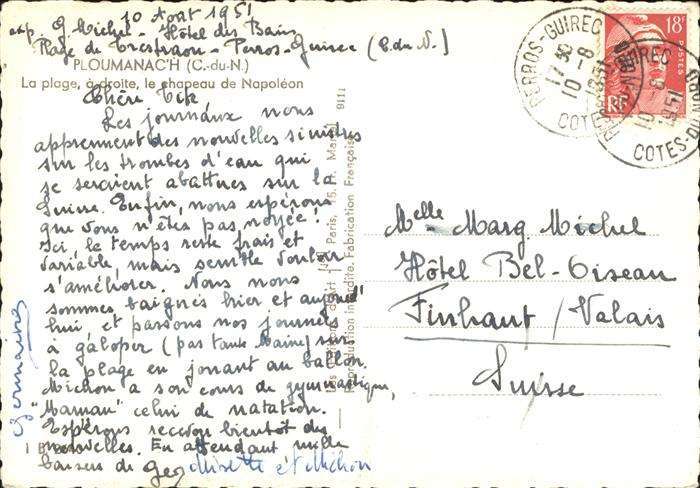 10 Août 1951
exp. G. Michel - Hôtel des Bains
Plage de Trestraou - Perros-Guirec (C.du N.)
PLOUMANAC'H (C.-du-N.)
La plage, à droite, le chapeau de Napoléon
Chère Tik
Les journaux nous
apprennent des nouvelles sinistres
sur les trombes d'eau qui
se seraient abattues sur la
Suisse. Enfin, nous espérons
que vous n'êtes pas noyée!
Ici le temps reste frais et
variable, mais semble vouloir
s'améliorer. Nous nous
sommes baignés hier et aujourd'
hui et passons nos journées
à galoper (pas tante Maine) sur
la plage en jouant au ballon.
Michon a son cours de gymnastique,
"Maman" celui de natation.
Espérons recevoir bientôt des
nouvelles. En attendant mille
baisers de Geo Misette et Michon
Germaine
9111
Paris, 15, R.
Reproduction interdite. Fabrication Française
18F
POSTES
RF
PERROS-GUIREC
10-8
1951
COTES-DU-NORD
PERROS-GUIREC
10-8
1951
COTES-DU-NORD
Melle Marg Michel
Hôtel Bel-Oiseau
Finhaut / Valais
Suisse